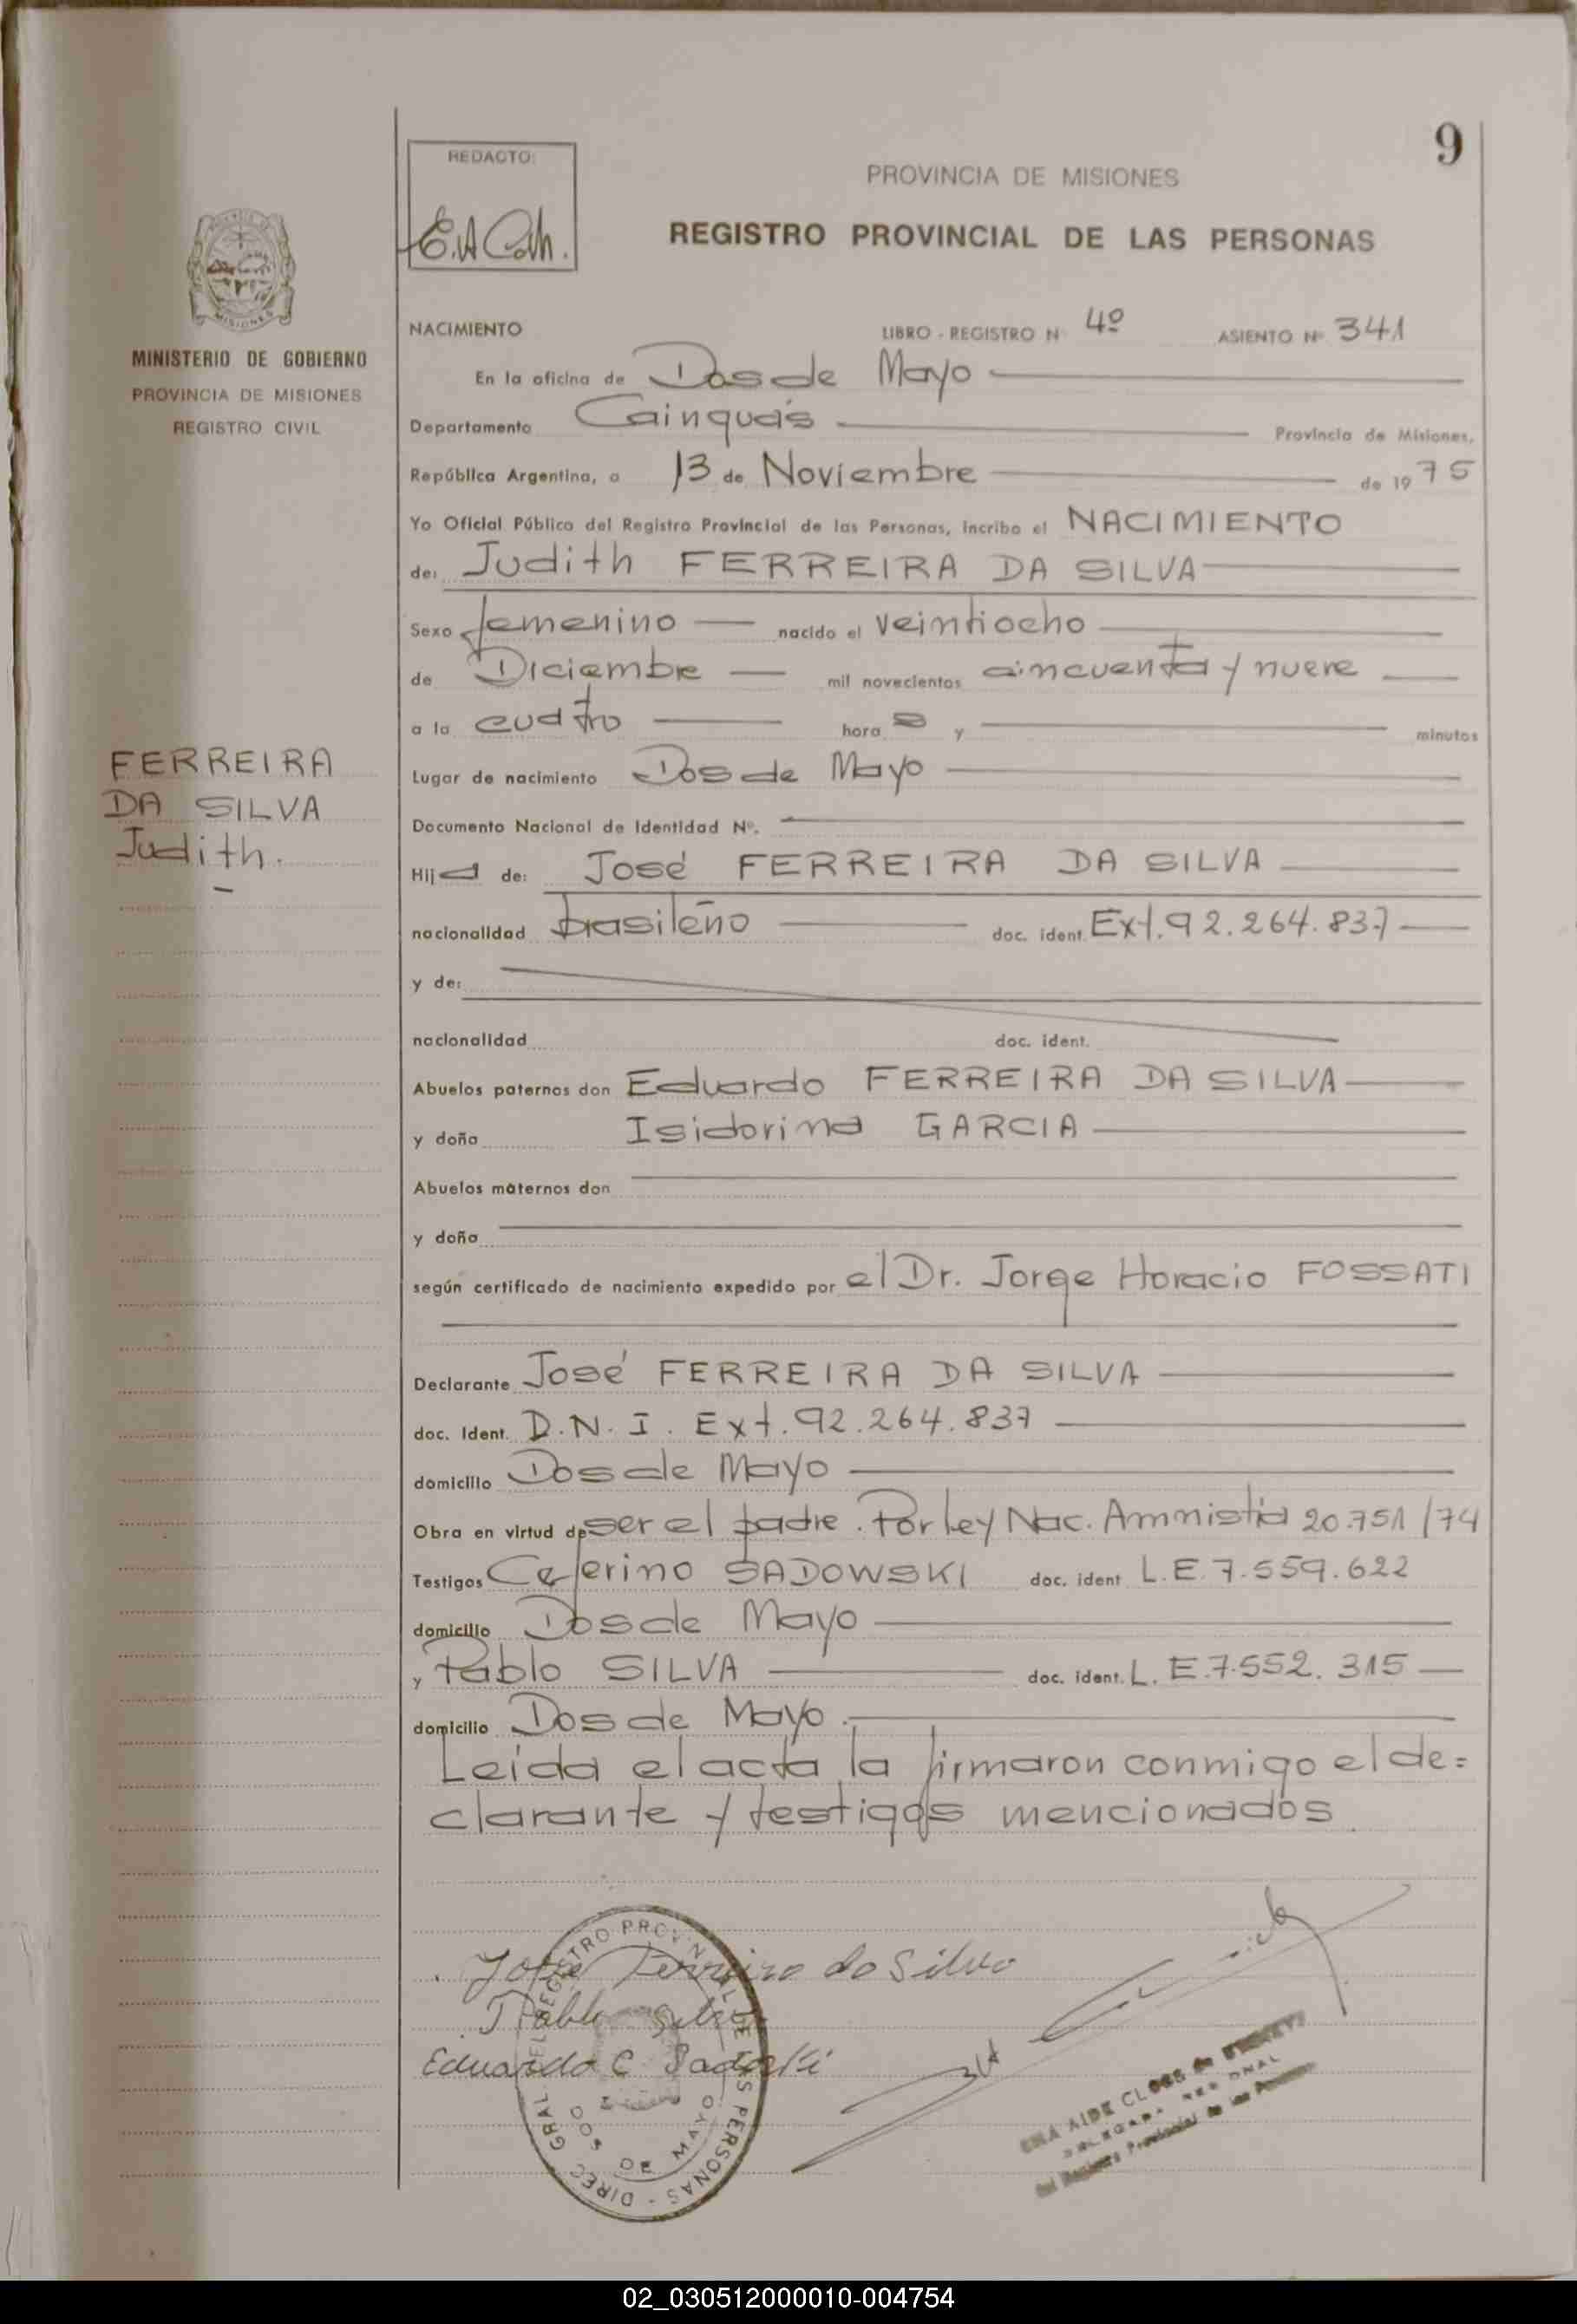 9
REDACTO:
E.A Coth.
PROVINCIA DE MISIONES
REGISTRO PROVINCIAL DE LAS PERSONAS
MISIONES
MINISTERIO DE GOBIERNO
PROVINCIA DE MISIONES
REGISTRO CIVIL
FERREIRA
DA SILVA
Judith.
NACIMIENTO LIBRO - REGISTRO N 4º ASIENTO Nº 341
En la oficina de Dos de Mayo
Departamento Cainguás Provincia de Misiones,
República Argentina, a 13 de Noviembre de 1975
Yo Oficial Público del Registro Provincial de las Personas, incribo el NACIMIENTO
de: Judith FERREIRA DA SILVA
Sexo femenino nacido el veintiocho
de Diciembre mil novecientos cincuenta y nueve
a la cuatro hora s y minutos
Lugar de nacimiento Dos de Mayo
Documento Nacional de Identidad Nº.
Hija de: José FERREIRA DA SILVA
nacionalidad brasileño doc. ident. Ext. 92.264.837
y de:
nacionalidad doc. ident.
Abuelos paternos don Eduardo FERREIRA DA SILVA
y doña Isidorina GARCIA
Abuelos maternos don
y doña
según certificado de nacimiento expedido por el Dr. Jorge Horacio FOSSATI
Declarante José FERREIRA DA SILVA
doc. Ident. D.N.I. Ext. 92.264.837
domicilio Dos de Mayo
Obra en virtud de ser el padre. Por ley Nac. Amnistia 20.751/74
Testigos Ceferino SADOWSKI doc. ident L.E. 7.559.622
domicilio Dos de Mayo
y Pablo SILVA doc. ident. L.E. 7.552.315
domicilio Dos de Mayo.
Leída el acta, la firmaron conmigo el de=
clarante y testigos mencionados.
José Ferreira da Silva
Pablo Silva
Eduardo C Sadoski
DIREC. GRAL. DEL REGISTRO PROVINCIAL DE LAS PERSONAS
DOS DE MAYO
AIDE
02_030512000010-004754